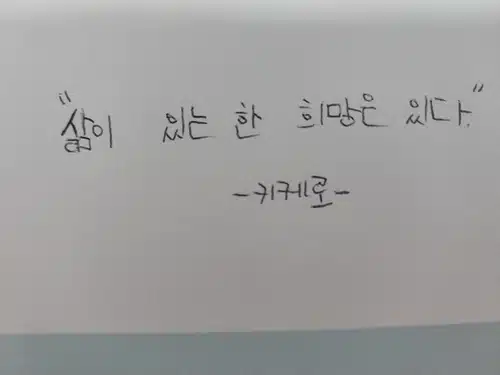 "삶이 있는 한 희망은 있다."
-키케로-